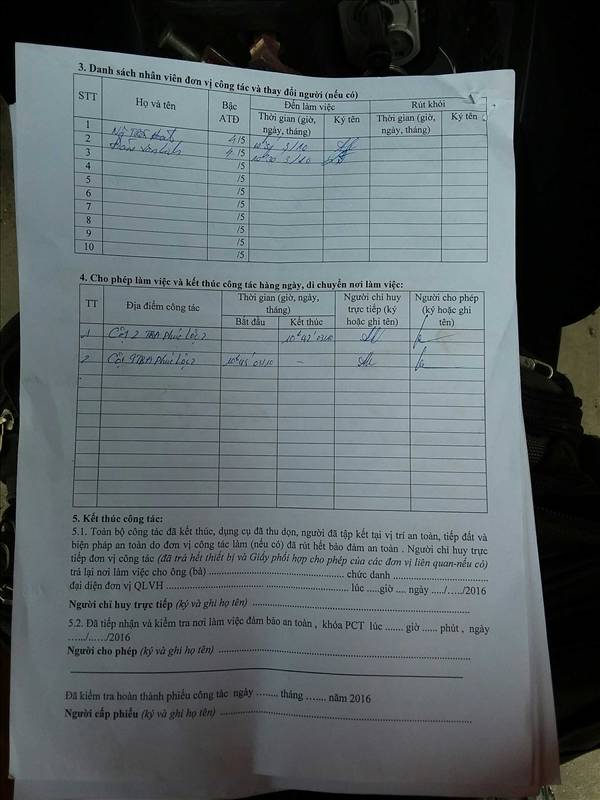 3. Danh sách nhân viên đơn vị công tác và thay đổi người (nếu có)
STT Họ và tên Bậc ATĐ Đến làm việc Rút khỏi
Thời gian (giờ, ngày, tháng) Ký tên Thời gian (giờ, ngày, tháng) Ký tên
1
2 4/5 3/10
3 4/5 3/10
4 /5
5 /5
6 /5
7 /5
8 /5
9 /5
10 /5
/5
4. Cho phép làm việc và kết thúc công tác hàng ngày, di chuyển nơi làm việc:
TT Địa điểm công tác Thời gian (giờ, ngày, tháng) Người chỉ huy trực tiếp (ký hoặc ghi tên) Người cho phép (ký hoặc ghi tên)
Bắt đầu Kết thúc
1 Cột 2 TBA Phúc Lộc 2
2 Cột 9 TBA Phúc Lộc 2 –
5. Kết thúc công tác:
5.1. Toàn bộ công tác đã kết thúc, dụng cụ đã thu dọn, người đã tập kết tại vị trí an toàn, tiếp đất và
biện pháp an toàn do đơn vị công tác làm (nếu có) đã rút hết bảo đảm an toàn . Người chỉ huy trực
tiếp đơn vị công tác (đã trả hết thiết bị và Giấy phối hợp cho phép của các đơn vị liên quan-nếu có)
trả lại nơi làm việc cho ông (bà) .......... chức danh ..........
đại diện đơn vị QLVH .......... lúc .....giờ .... ngày ...../...../2016
Người chỉ huy trực tiếp (ký và ghi họ tên) ..........
5.2. Đã tiếp nhận và kiểm tra nơi làm việc đảm bảo an toàn , khóa PCT lúc ....... giờ ...... phút , ngày
....../....../2016
Người cho phép (ký và ghi họ tên) ..........
Đã kiểm tra hoàn thành phiếu công tác ngày ........ tháng ....... năm 2016
Người cấp phiếu (ký và ghi họ tên) ..........